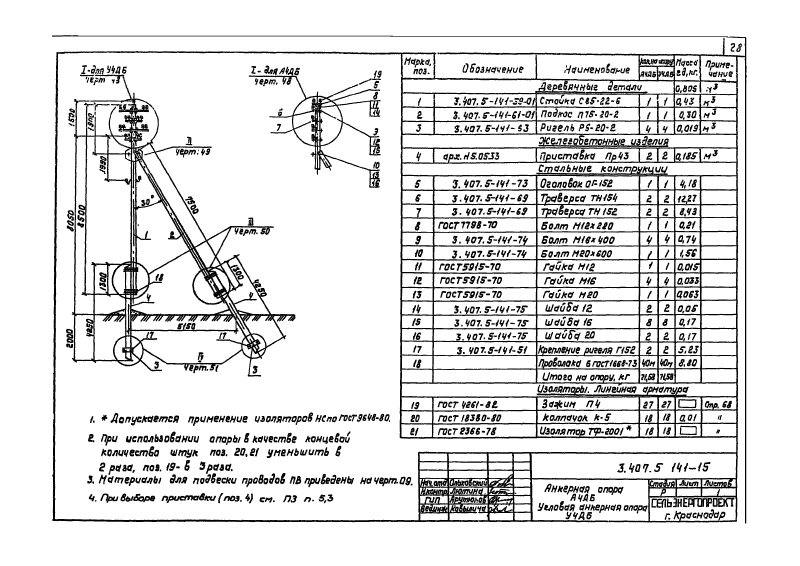 28
I-для У4ДБ
черт. 43
I-для А4ДБ
черт. 48
19
5
8
11
14
6
7
9
12
15
10
13
16
II
черт. 49
1500
1900
1900
8050
8500
30°
7500
1
2
III
черт. 50
1300
18
1300
4250
4
4
5150
2000
4250
17
17
3
IV
черт. 51
3
Марка, поз. Обозначение Наименование А4ДБ У4ДБ Масса ед, кг. Примечание
Деревянные детали 0,806 м³
1 3.407.5-141-59-01 Стойка С85-22-6 1 1 0,43 м³
2 3.407.5-141-61-01 Подкос П75-20-2 1 1 0,30 м³
3 3.407.5-141-63 Ригель Р5-20-2 4 4 0,019 м³
Железобетонные изделия
4 арх. №5.0533 Приставка Пр43 2 2 0,185 м³
Стальные конструкции
5 3.407.5-141-73 Оголовок ОГ-152 1 1 4,18
6 3.407.5-141-69 Траверса ТН154 2 2 12,27
7 3.407.5-141-69 Траверса ТН152 2 2 8,43
8 ГОСТ 7798-70 Болт М12×280 1 1 0,21
9 3.407.5-141-74 Болт М16×400 4 4 0,74
10 3.407.5-141-74 Болт М20×600 1 1 1,56
11 ГОСТ 5915-70 Гайка М12 1 1 0,015
12 ГОСТ 5915-70 Гайка М16 4 4 0,033
13 ГОСТ 5915-70 Гайка М20 1 1 0,063
14 3.407.5-141-75 Шайба 12 2 2 0,06
15 3.407.5-141-75 Шайба 16 8 8 0,17
16 3.407.5-141-75 Шайба 20 2 2 0,17
17 3.407.5-141-51 Крепление ригеля Г152 2 2 5,23
18 Проволока 6 ГОСТ 1668-73 40м 40м 8,80
Итого на опору, кг 71,58 71,58
Изоляторы. Линейная арматура
19 ГОСТ 4261-82 Зажим П4 27 27 Опр. 68
20 ГОСТ 18380-80 Колпачок К-5 18 18 0,01 "
21 ГОСТ 2366-78 Изолятор ТФ-2001* 18 18 "
1. * Допускается применение изоляторов НС по ГОСТ 9648-80.
2. При использовании опоры в качестве концевой
количество штук поз. 20,21 уменьшить в
2 раза, поз. 19- в 3 раза.
3. Материалы для подвески проводов ПВ приведены на черт. 09.
4. При выборе приставки (поз. 4) см. ПЗ п. 5,3
3.407.5 141-15
Нач.отд Ольховский
Н.контр. Лютина
ГИП Арутюнов
Вед.инж Ковылича
Анкерная опора
А4ДБ
Угловая анкерная опора
У4ДБ
Стадия Лист Листов
Р 1
СЕЛЬЭНЕРГОПРОЕКТ
г. Краснодар